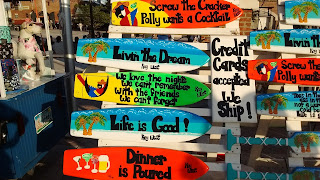 Screw the Cracker
Polly wants a Cocktail
Livin the Dream
Key West
We love the nights
We can't remember
with the Friends
We can't forget
Life is Good!
Key West
Dinner
is Poured
Credit
Cards
accepted
We
Ship!
Livin the
Screw
Polly wants
Life is